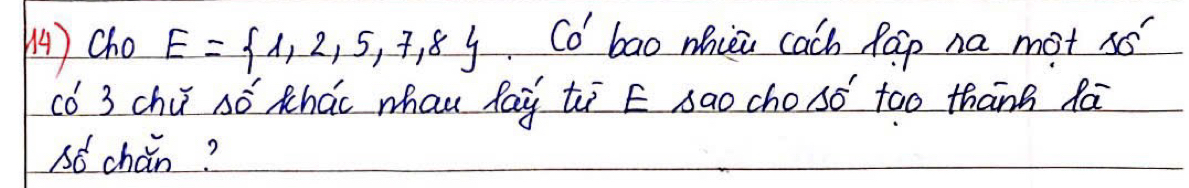 14) Cho E = {1, 2, 5, 7, 8}. Có bao nhiêu cách lập ra một số
có 3 chữ số khác nhau lấy từ E sao cho số tạo thành là
số chẵn ?